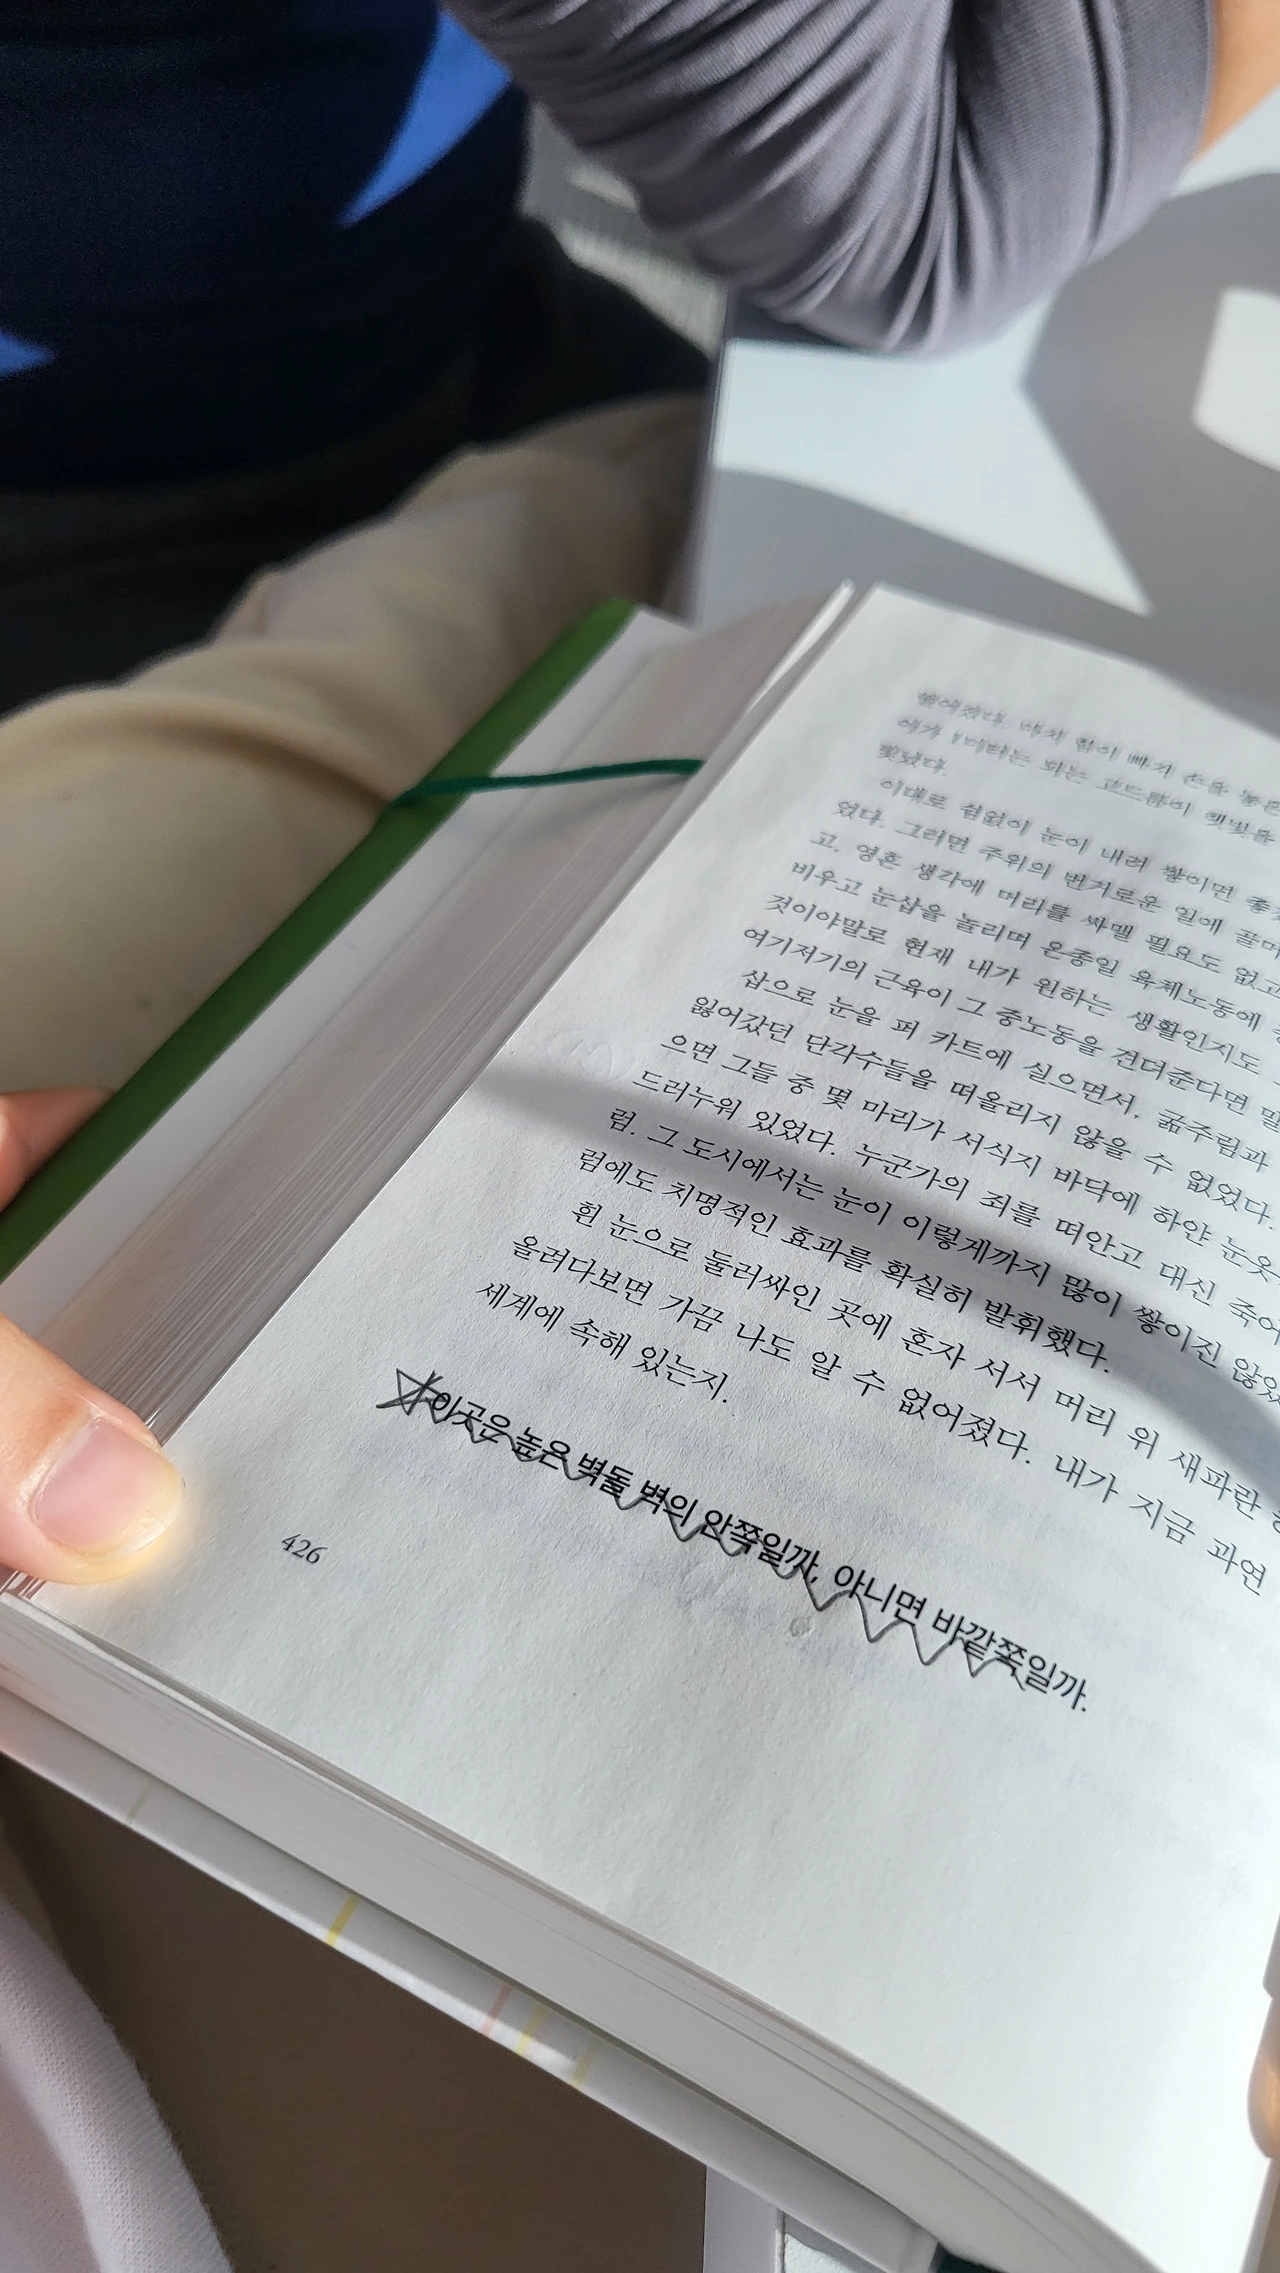 떨어졌다. 마치 힘이 빠져 손을 놓은
이가 1미터는 되는 고드름이 햇빛을
빛났다.
이대로 쉼없이 눈이 내려 쌓이면 좋
었다. 그러면 주위의 번거로운 일에 골머
고, 영혼 생각에 머리를 싸맬 필요도 없고
비우고 눈삽을 놀리며 온종일 육체노동에
것이야말로 현재 내가 원하는 생활인지도
여기저기의 근육이 그 중노동을 견뎌준다면 말
삽으로 눈을 퍼 카트에 실으면서, 굶주림과
잃어갔던 단각수들을 떠올리지 않을 수 없었다.
으면 그들 중 몇 마리가 서식지 바닥에 하얀 눈옷
드러누워 있었다. 누군가의 죄를 떠안고 대신 죽어
럼. 그 도시에서는 눈이 이렇게까지 많이 쌓이진 않았
럼에도 치명적인 효과를 확실히 발휘했다.
흰 눈으로 둘러싸인 곳에 혼자 서서 머리 위 새파란
올려다보면 가끔 나도 알 수 없어졌다. 내가 지금 과연
세계에 속해 있는지.
이곳은 높은 벽돌 벽의 안쪽일까, 아니면 바깥쪽일까.
426